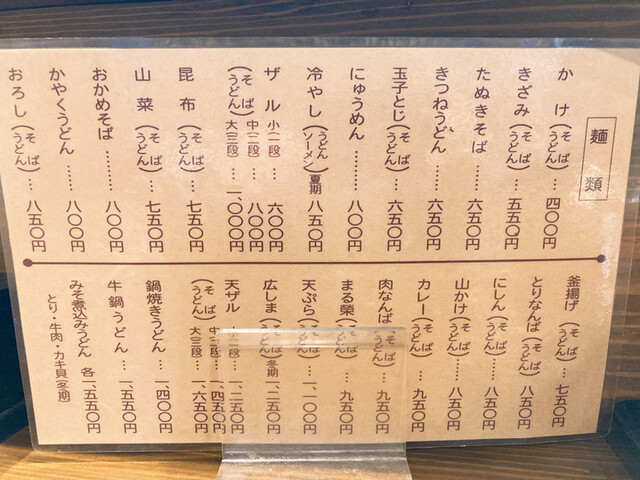 麺類
かけ(そば うどん)…四〇〇円
きざみ(そば うどん)…五五〇円
たぬきそば………六五〇円
きつねうどん……六五〇円
玉子とじ(そば うどん)…六五〇円
にゅうめん………八〇〇円
冷やし(うどん ソーメン)夏期 八五〇円
ザル 小二段…六〇〇円
(そば うどん)中(二段)…八〇〇円
大(三段)…一、〇〇〇円
昆布(そば うどん)…七五〇円
山菜(そば うどん)…七五〇円
おかめそば………八〇〇円
かやくうどん……八〇〇円
おろし(そば うどん)…八五〇円
釜揚げ(そば うどん)…七五〇円
とりなんば(そば うどん)八五〇円
にしん(そば うどん)……八五〇円
山かけ(そば うどん)……八五〇円
カレー(そば うどん)…九五〇円
肉なんば(そば うどん)…九五〇円
まる榮(そば うどん)…九五〇円
天ぷら(そば うどん)…一、一〇〇円
広しま(そば うどん)冬期 一、二五〇円
天ザル 小二段…一、二五〇円
(そば うどん)中(二段)…一、四五〇円
大(三段)…一、六五〇円
鍋焼きうどん…一、四〇〇円
牛鍋うどん…一、五五〇円
みそ煮込みうどん 各一、五五〇円
とり・牛肉・カキ貝(冬期)